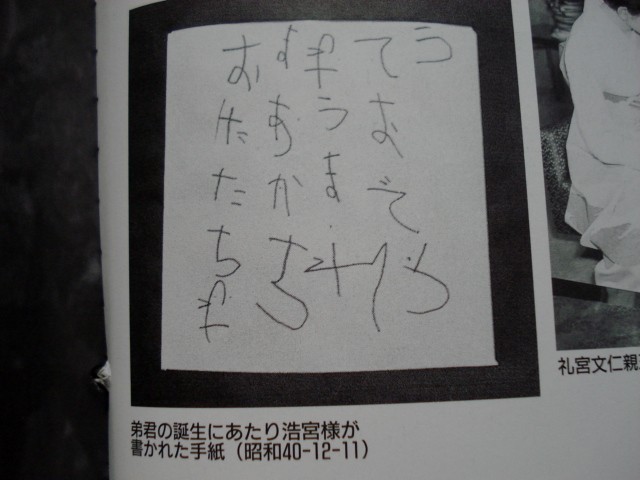 おたたちゃ
まあかち
ゃうまれ
ておでと
う
礼宮文仁親
弟君の誕生にあたり浩宮様が
書かれた手紙（昭和40-12-11）